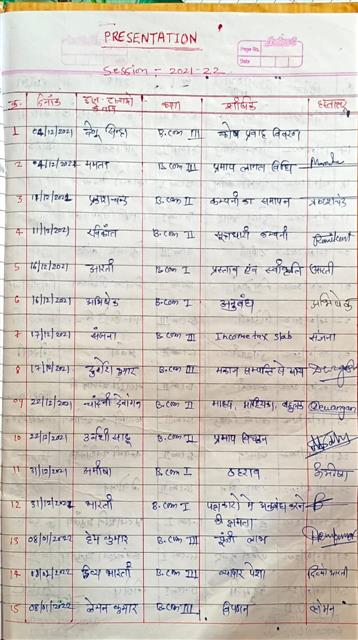 PRESENTATION
Page No.
Date
Session :- 2021-22
क्र. दिनांक कक्षा शीर्षक हस्ताक्षर
1 04/12/2021 B.com III कोष प्रवाह विवरण
2 04/12/2021 ममता B.com III प्रमाप लागत विधि
3 B.com II कम्पनी का समापन
4 11/12/2021 रविकांत B.com II सूत्रधारी कम्पनी Ravikant
5 16/12/2021 आरती B.com I प्रस्ताव एवं स्वीकृति आरती
6 16/12/2021 अभिषेक B.com I अनुबंध अभिषेक
7 17/12/2021 संजना B.com III Income tax slab संजना
8 17/12/2021 कुमार B.com III मकान सम्पत्ति से आय
09 22/12/2021 देवांगन B.com II माध्य, माध्यिका, बहुलक Dewangan
10 22/12/2021 उर्वशी साहू B.com II प्रमाप विचलन
11 31/12/2021 मनीषा B.com I ठहराव मनीषा
12 31/12/2021 भारती B.com I पक्षकारों में अनुबंध करने की क्षमता
13 08/01/2022 हेम कुमार B.com III पूंजी लाभ Hemkumar
14 दिव्य भारती B.com III व्यापार पेशा
15 08/01/2022 लेमन कुमार B.com III विपणन लेमन